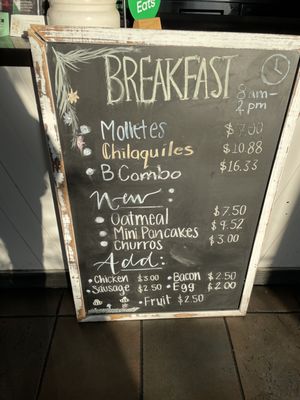 Eats
BREAKFAST
8am-
2pm
Molletes $7.00
Chilaquiles $10.88
B Combo $16.33
New:
Oatmeal $7.50
Mini Pancakes $9.52
Churros $3.00
Add:
Chicken $3.00 • Bacon $2.50
Sausage $2.50 • Egg $2.00
• Fruit $2.50